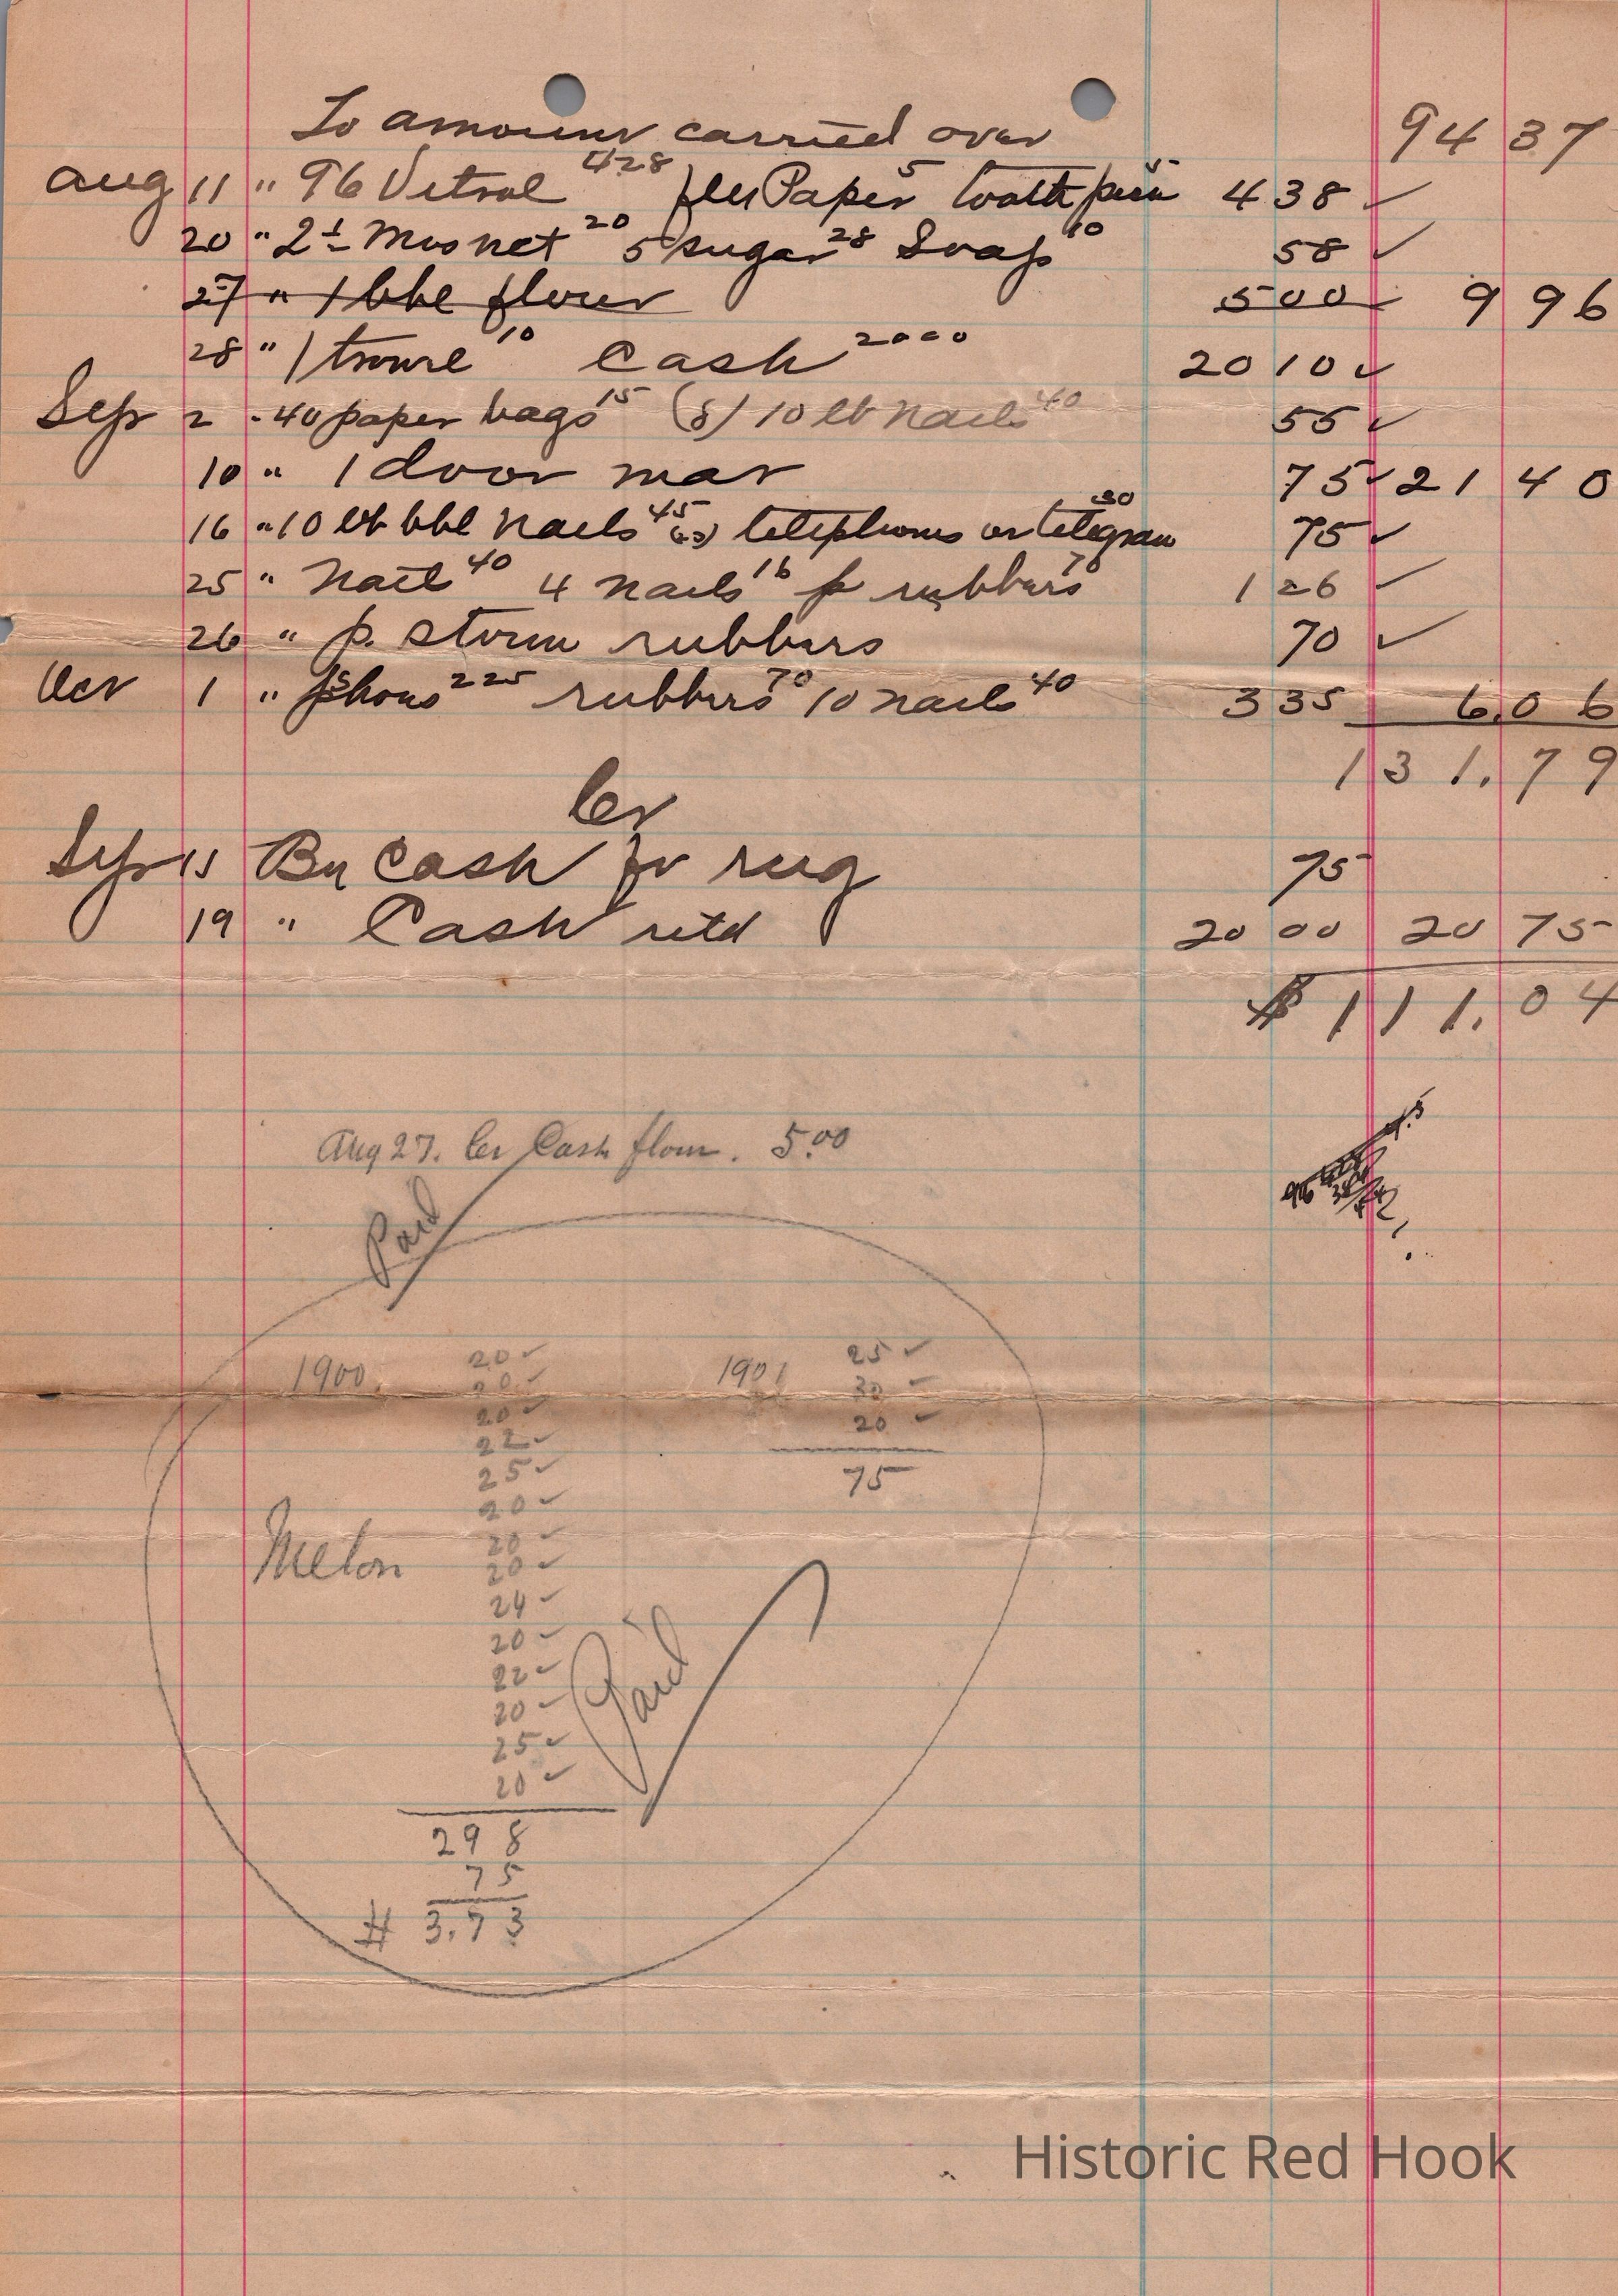 To amount carried over 94 37
Aug 11 " 96 Vitrol 428 Paper 5 tooth 5 4 38 ✓
20 " 2 1 Mos net 20 5 sugar 28 Soap 10 58 ✓
27 " 1 bbl flour 5 00 9 96
28 " 1 10 Cash 2000 20 10 ✓
Sep 2 " 40 paper bags 15 (8) 10 lb nails 40 55 ✓
10 " 1 door mat 75 ✓ 21 40
16 " 10 lb bbl nails 45 telephone or telegram 30 75 ✓
25 " Nail 40 4 nails 16 p rubbers 70 1 26 ✓
26 " p. storm rubbers 70 ✓
Oct 1 " p shoes 225 rubbers 70 10 nails 40 3 35 6.06
131.79
Cr
Sep 15 By Cash for rug 75
19 " Cash retd 20 00 20 75
$ 111.04
Aug 27. Cr Cash flour. 5.00
Paid
1900. 20 ✓ 1901 25 ✓
20 ✓ 30 ✓
20 ✓ 20 ✓
22 ✓
25 ✓ 75
20 ✓
20 ✓
Melon 20 ✓
24 ✓
20 ✓
22 ✓
20 ✓ Paid
25 ✓
20 ✓
298
75
$ 3.73
Historic Red Hook